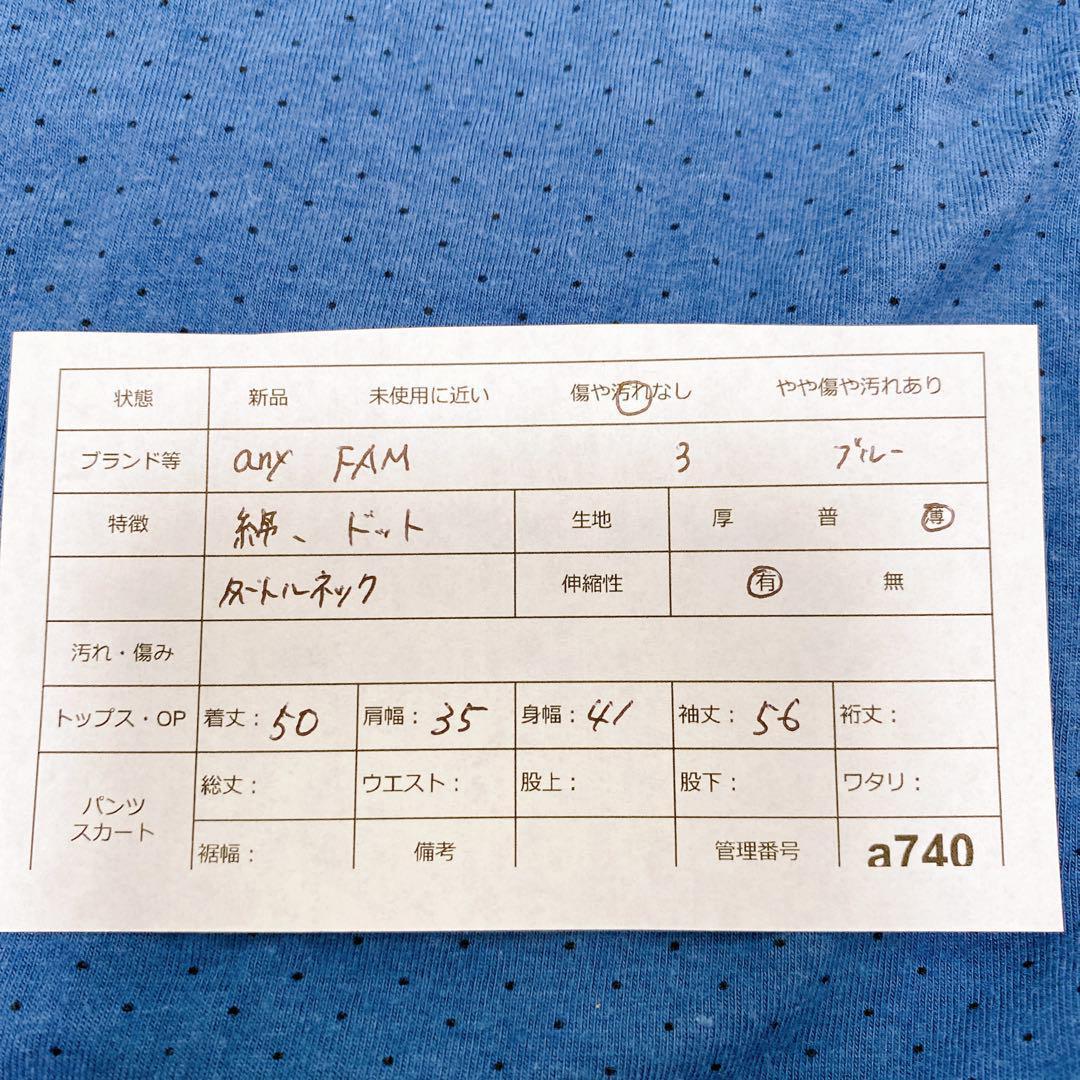 状態 新品 未使用に近い 傷や汚れなし やや傷や汚れあり
ブランド等 any FAM 3 ブルー
特徴 綿、ドット 生地 厚 普 薄
タートルネック 伸縮性 有 無
汚れ・傷み
トップス・OP 着丈：50 肩幅：35 身幅：41 袖丈：56 裄丈：
パンツ スカート 総丈： ウエスト： 股上： 股下： ワタリ：
裾幅： 備考 管理番号 a740